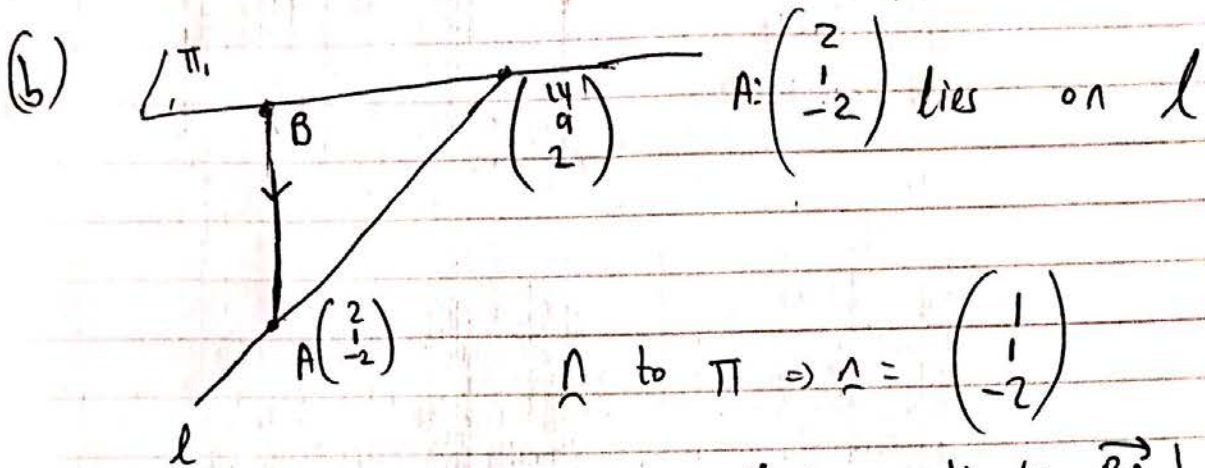 (b) π₁
B
(14
9
2)
A: (2
1
-2) lies on l
A (2
1
-2)
n to π ⇒ n = (1
1
-2)
l